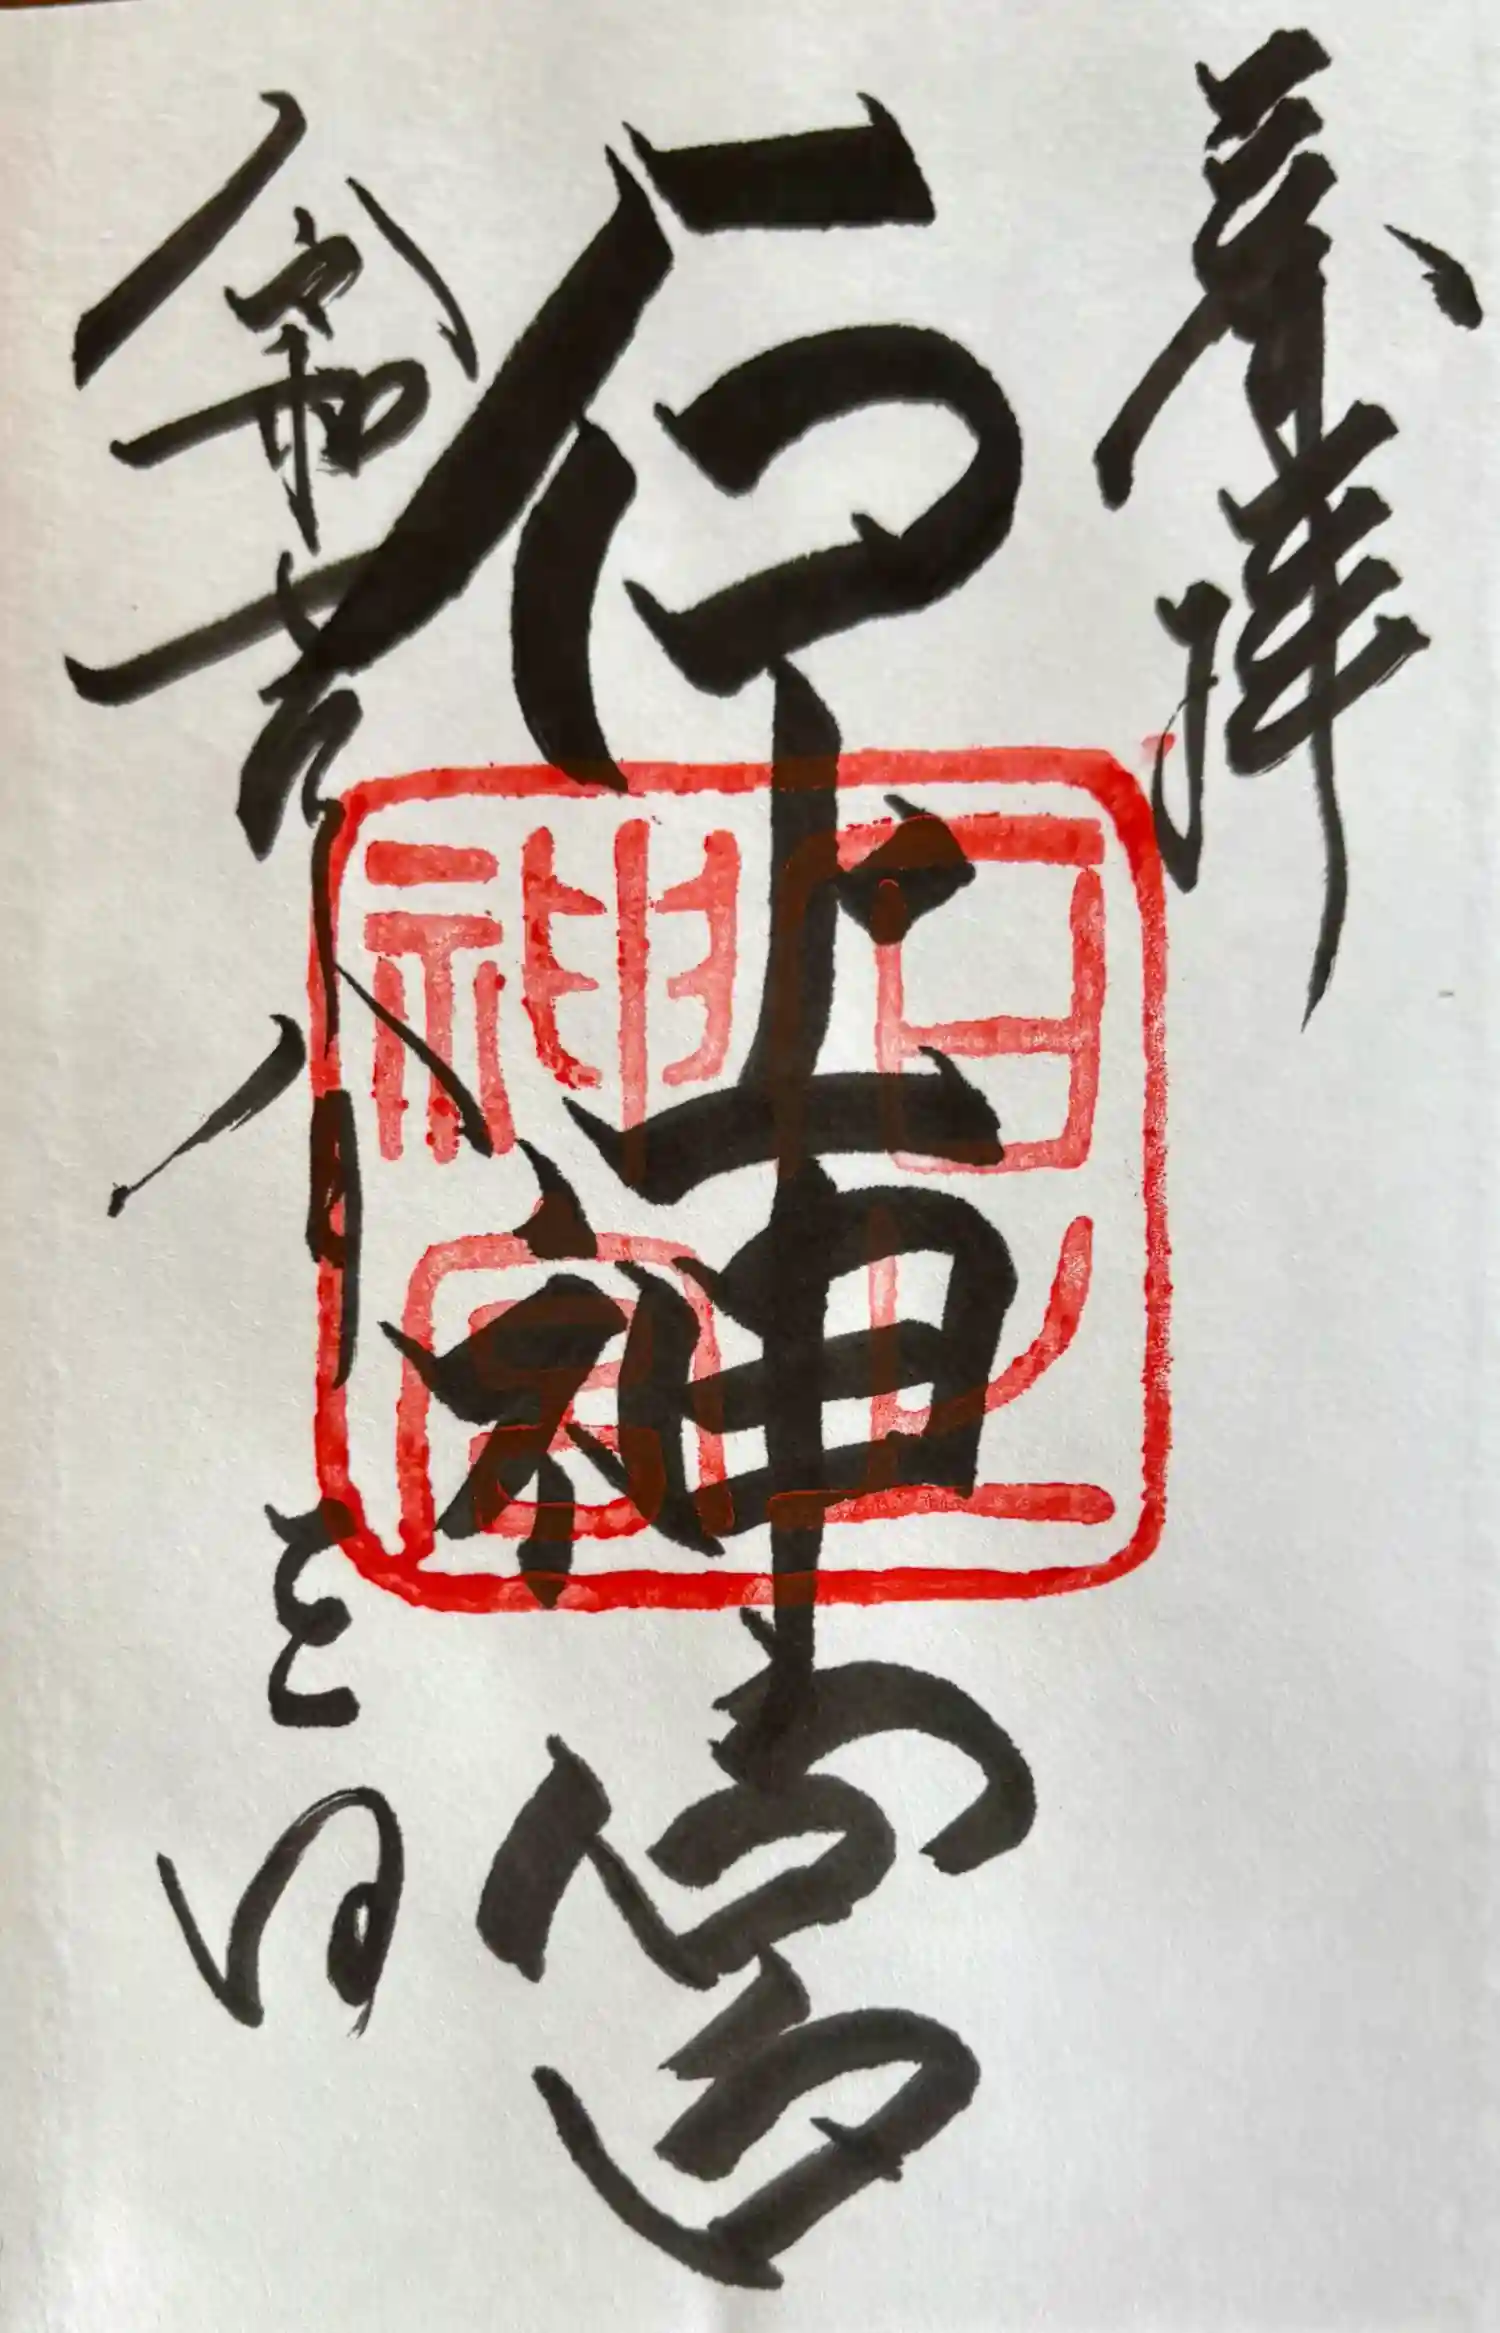 奉拝
石上神宮
令和 年八月三日
石上神宮